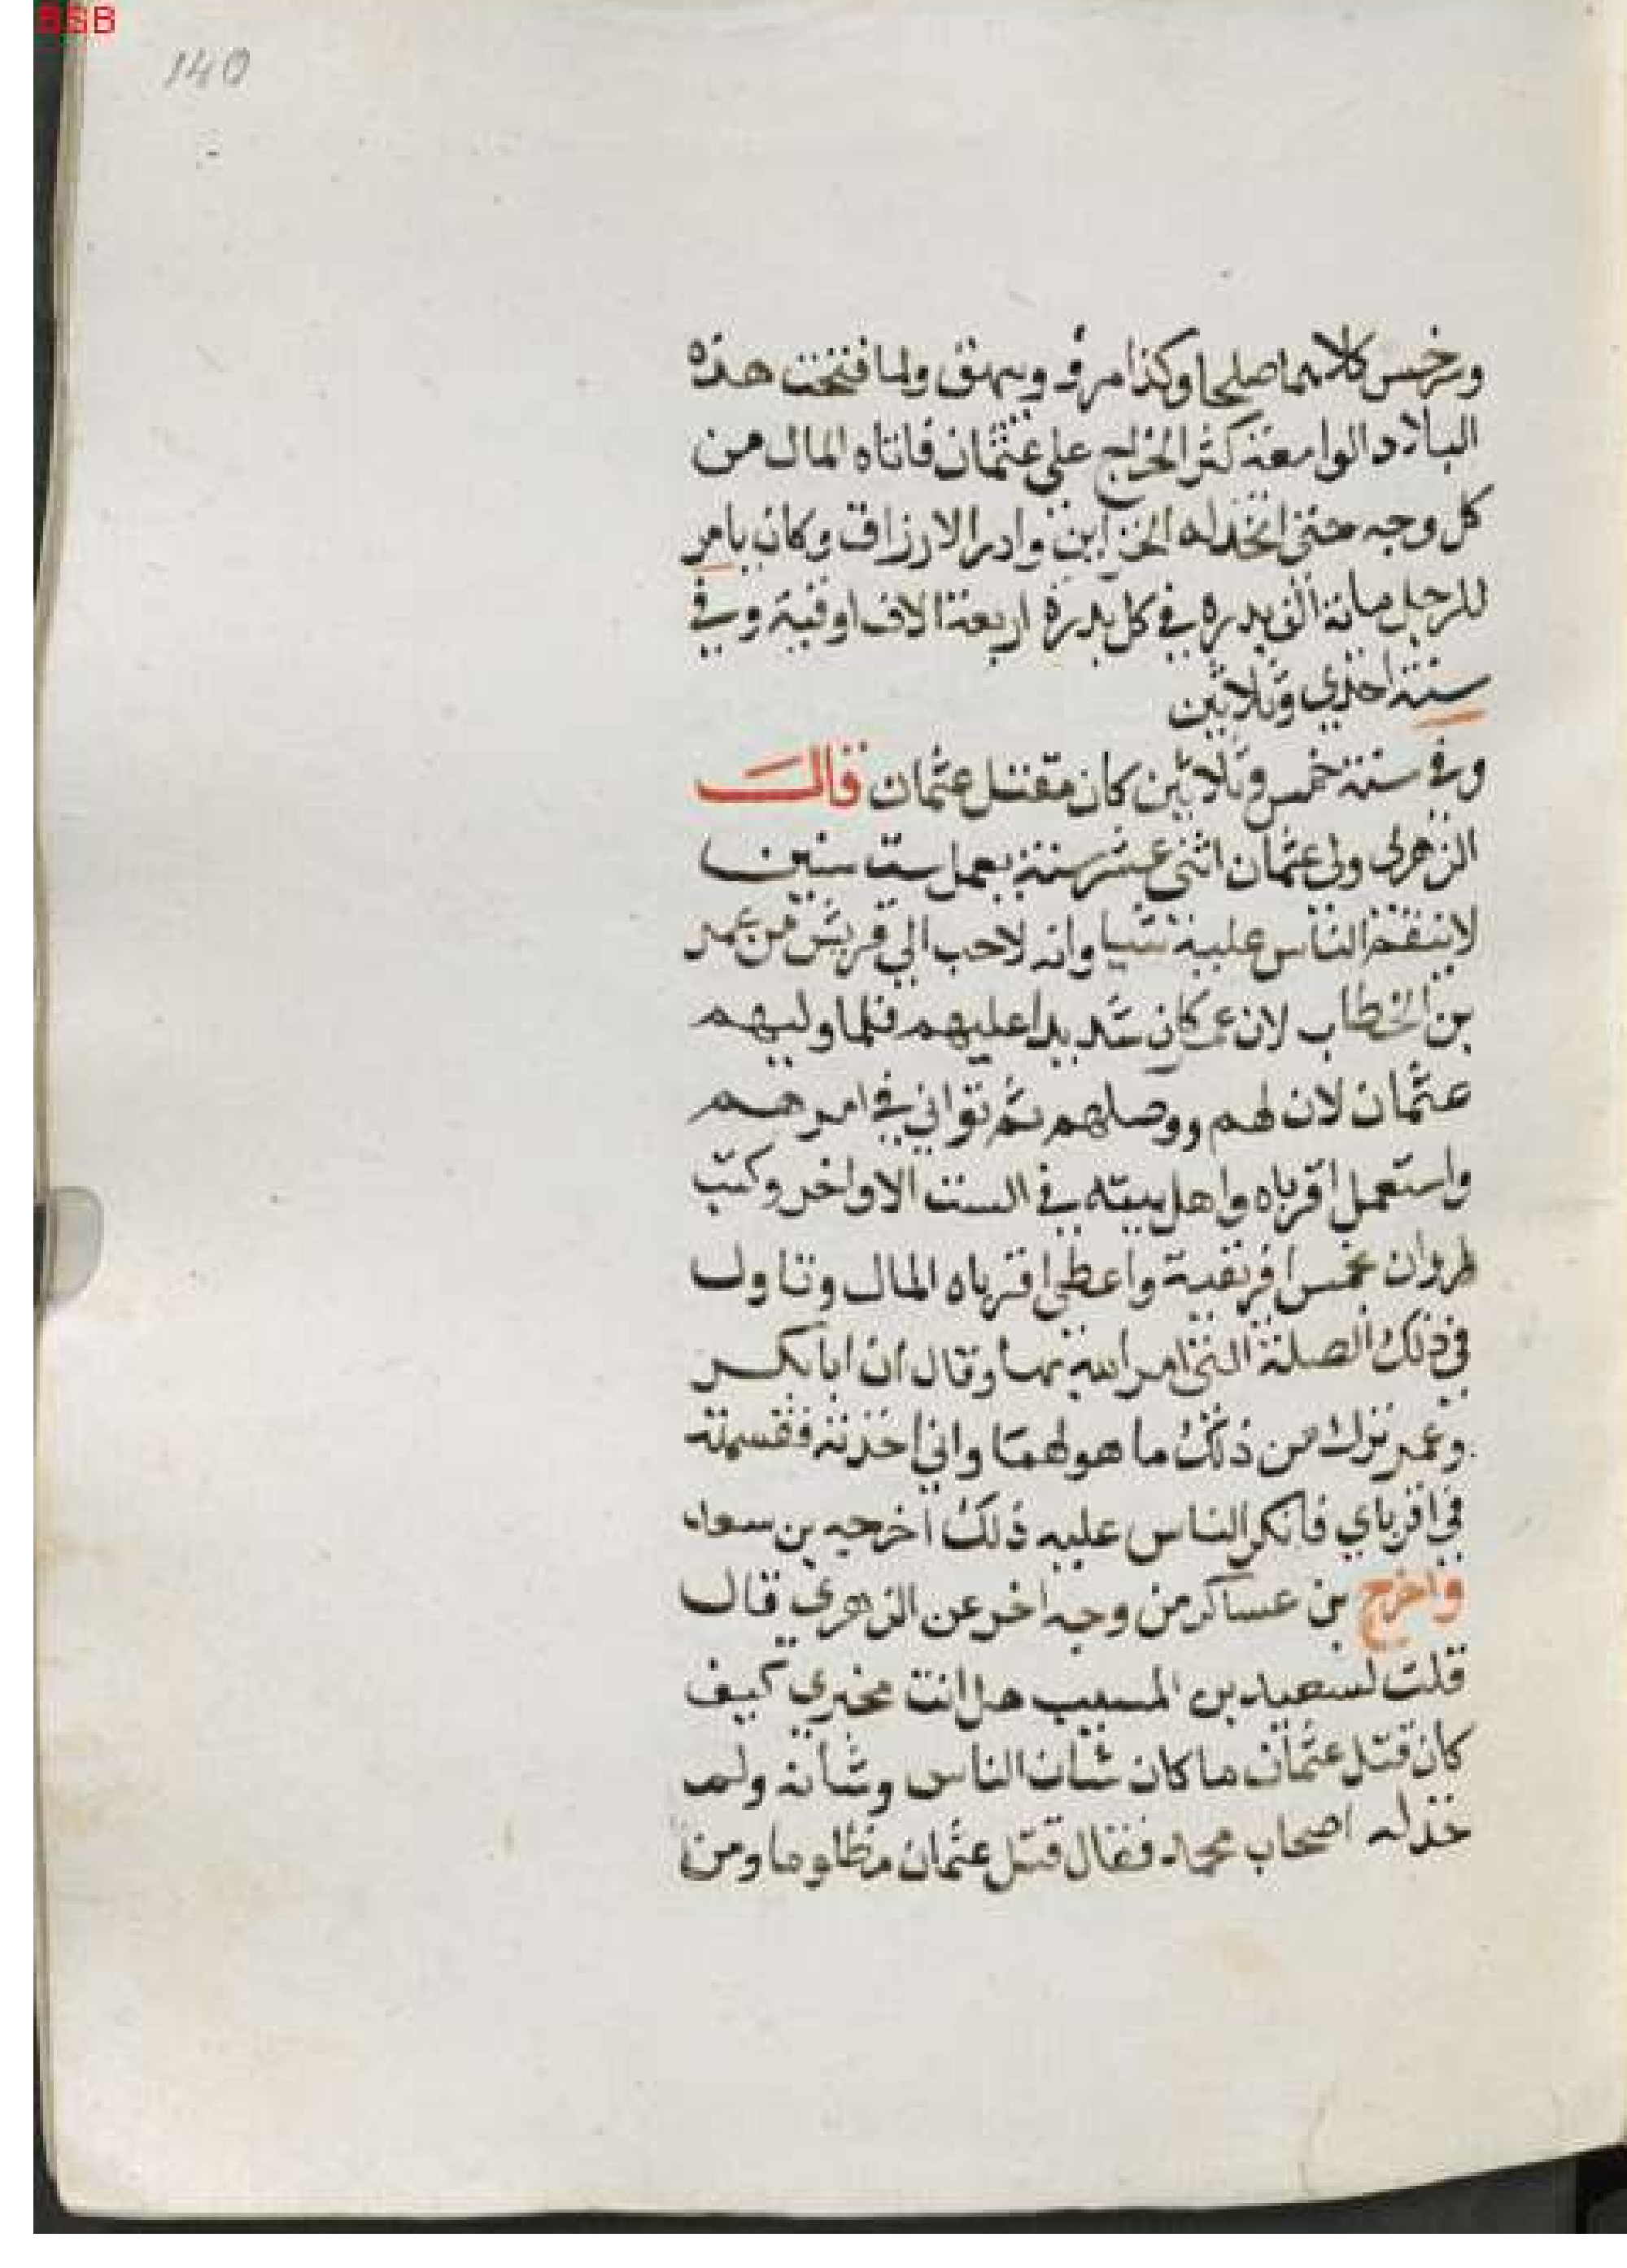 BSB
140
وسرخس كلاهما صلحا وكذا مرو وبيهق ولما فتحت هذه
البلاد الواسعة كثر الخراج على عثمان فاتاه المال من
كل وجه حتى اتخذ له الخزاين وادر الارزاق وكان يامر
للرجل مائة الف بدره في كل بدرة اربعة الاف اوقية وفي
سنة احدي وثلاثين
وفي سنة خمس وثلاثين كان مقتل عثمان قال
الزهرى ولى عثمان اثنى عشر سنة يعمل ست سنين
لا ينقم الناس عليه شيا وانه لاحب الي قريش من عمر
بن الخطاب لان عمر كان شديدا عليهم فلما وليهم
عثمان لان لهم ووصلهم ثم توانى في امرهم
واستعمل اقرباه واهل بيته في الست الاواخر وكتب
لمروان بخمس افريقية واعطى اقرباه المال وتاول
في ذلك الصلة التى امر الله بها وقال ان ابا بكر
وعمر تركا من ذلك ما هو لهما واني اخذته فقسمته
في اقرباي فانكر الناس عليه ذلك اخرجه بن سعد
واخرج بن عساكر من وجه اخر عن الزهري قال
قلت لسعيد بن المسيب هل انت مخبري كيف
كان قتل عثمان ما كان شان الناس وشانه ولم
خذله اصحاب محمد فقال قتل عثمان مظلوما ومن